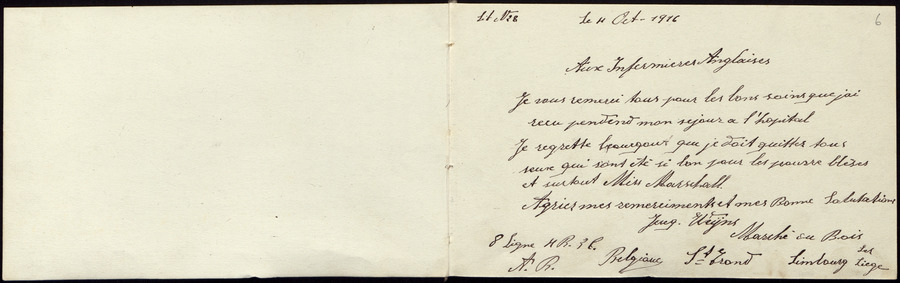 Lt N28 Le 4 Oct - 1916 6
Aux Infermieres Anglaises
Je vous remerci tous pour les bons soins que jai
recu pendend mon sejour a l'hopital
Je regrette beaugoux que je doit quitter tous
seux qui sont été si bon pour les pauvre blèses
et surtout Miss Marschall.
Agries mes remerciments et mes Bonne Salutations
Jeug. Weijns
Marché au Bois
8 Ligne 4 R.
A. B. Belgique St Trond Limbourg Les Liege